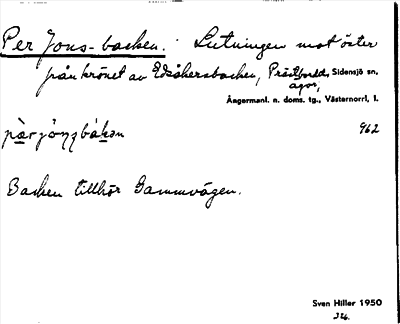 Per Jons-backen. Lutningen mot öster
från krönet av Edsåkersbacken, Prästbordet, Sidensjö sn,
ägor,
Ångermanl. n. doms. tg., Västernorrl. l.
962
Backen tillhör Gammvägen.
Sven Hiller 1950